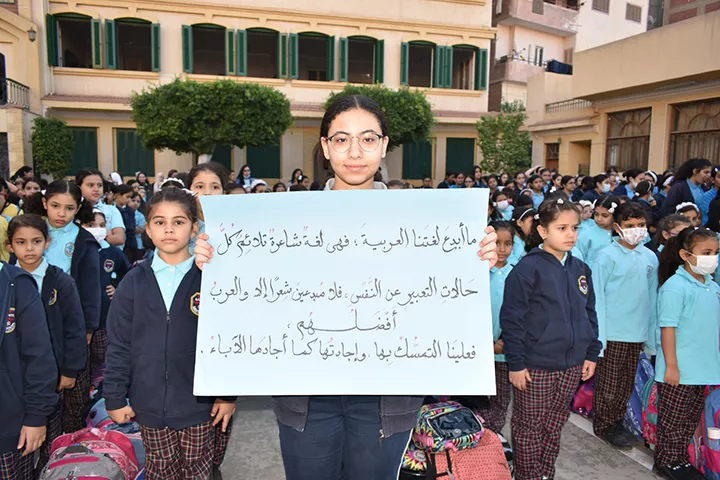 ما أبدع لغتنا العربية، فهي لغةٌ شاعرةٌ تلائم كلَّ
حالاتِ التعبير عن النَّفْسِ، فلا مبدعين شعرًا إلا والعرب
أفضلُهُم،
فعلينا التمسُّك بها، وإجادتُها كما أجادها الأدباء.